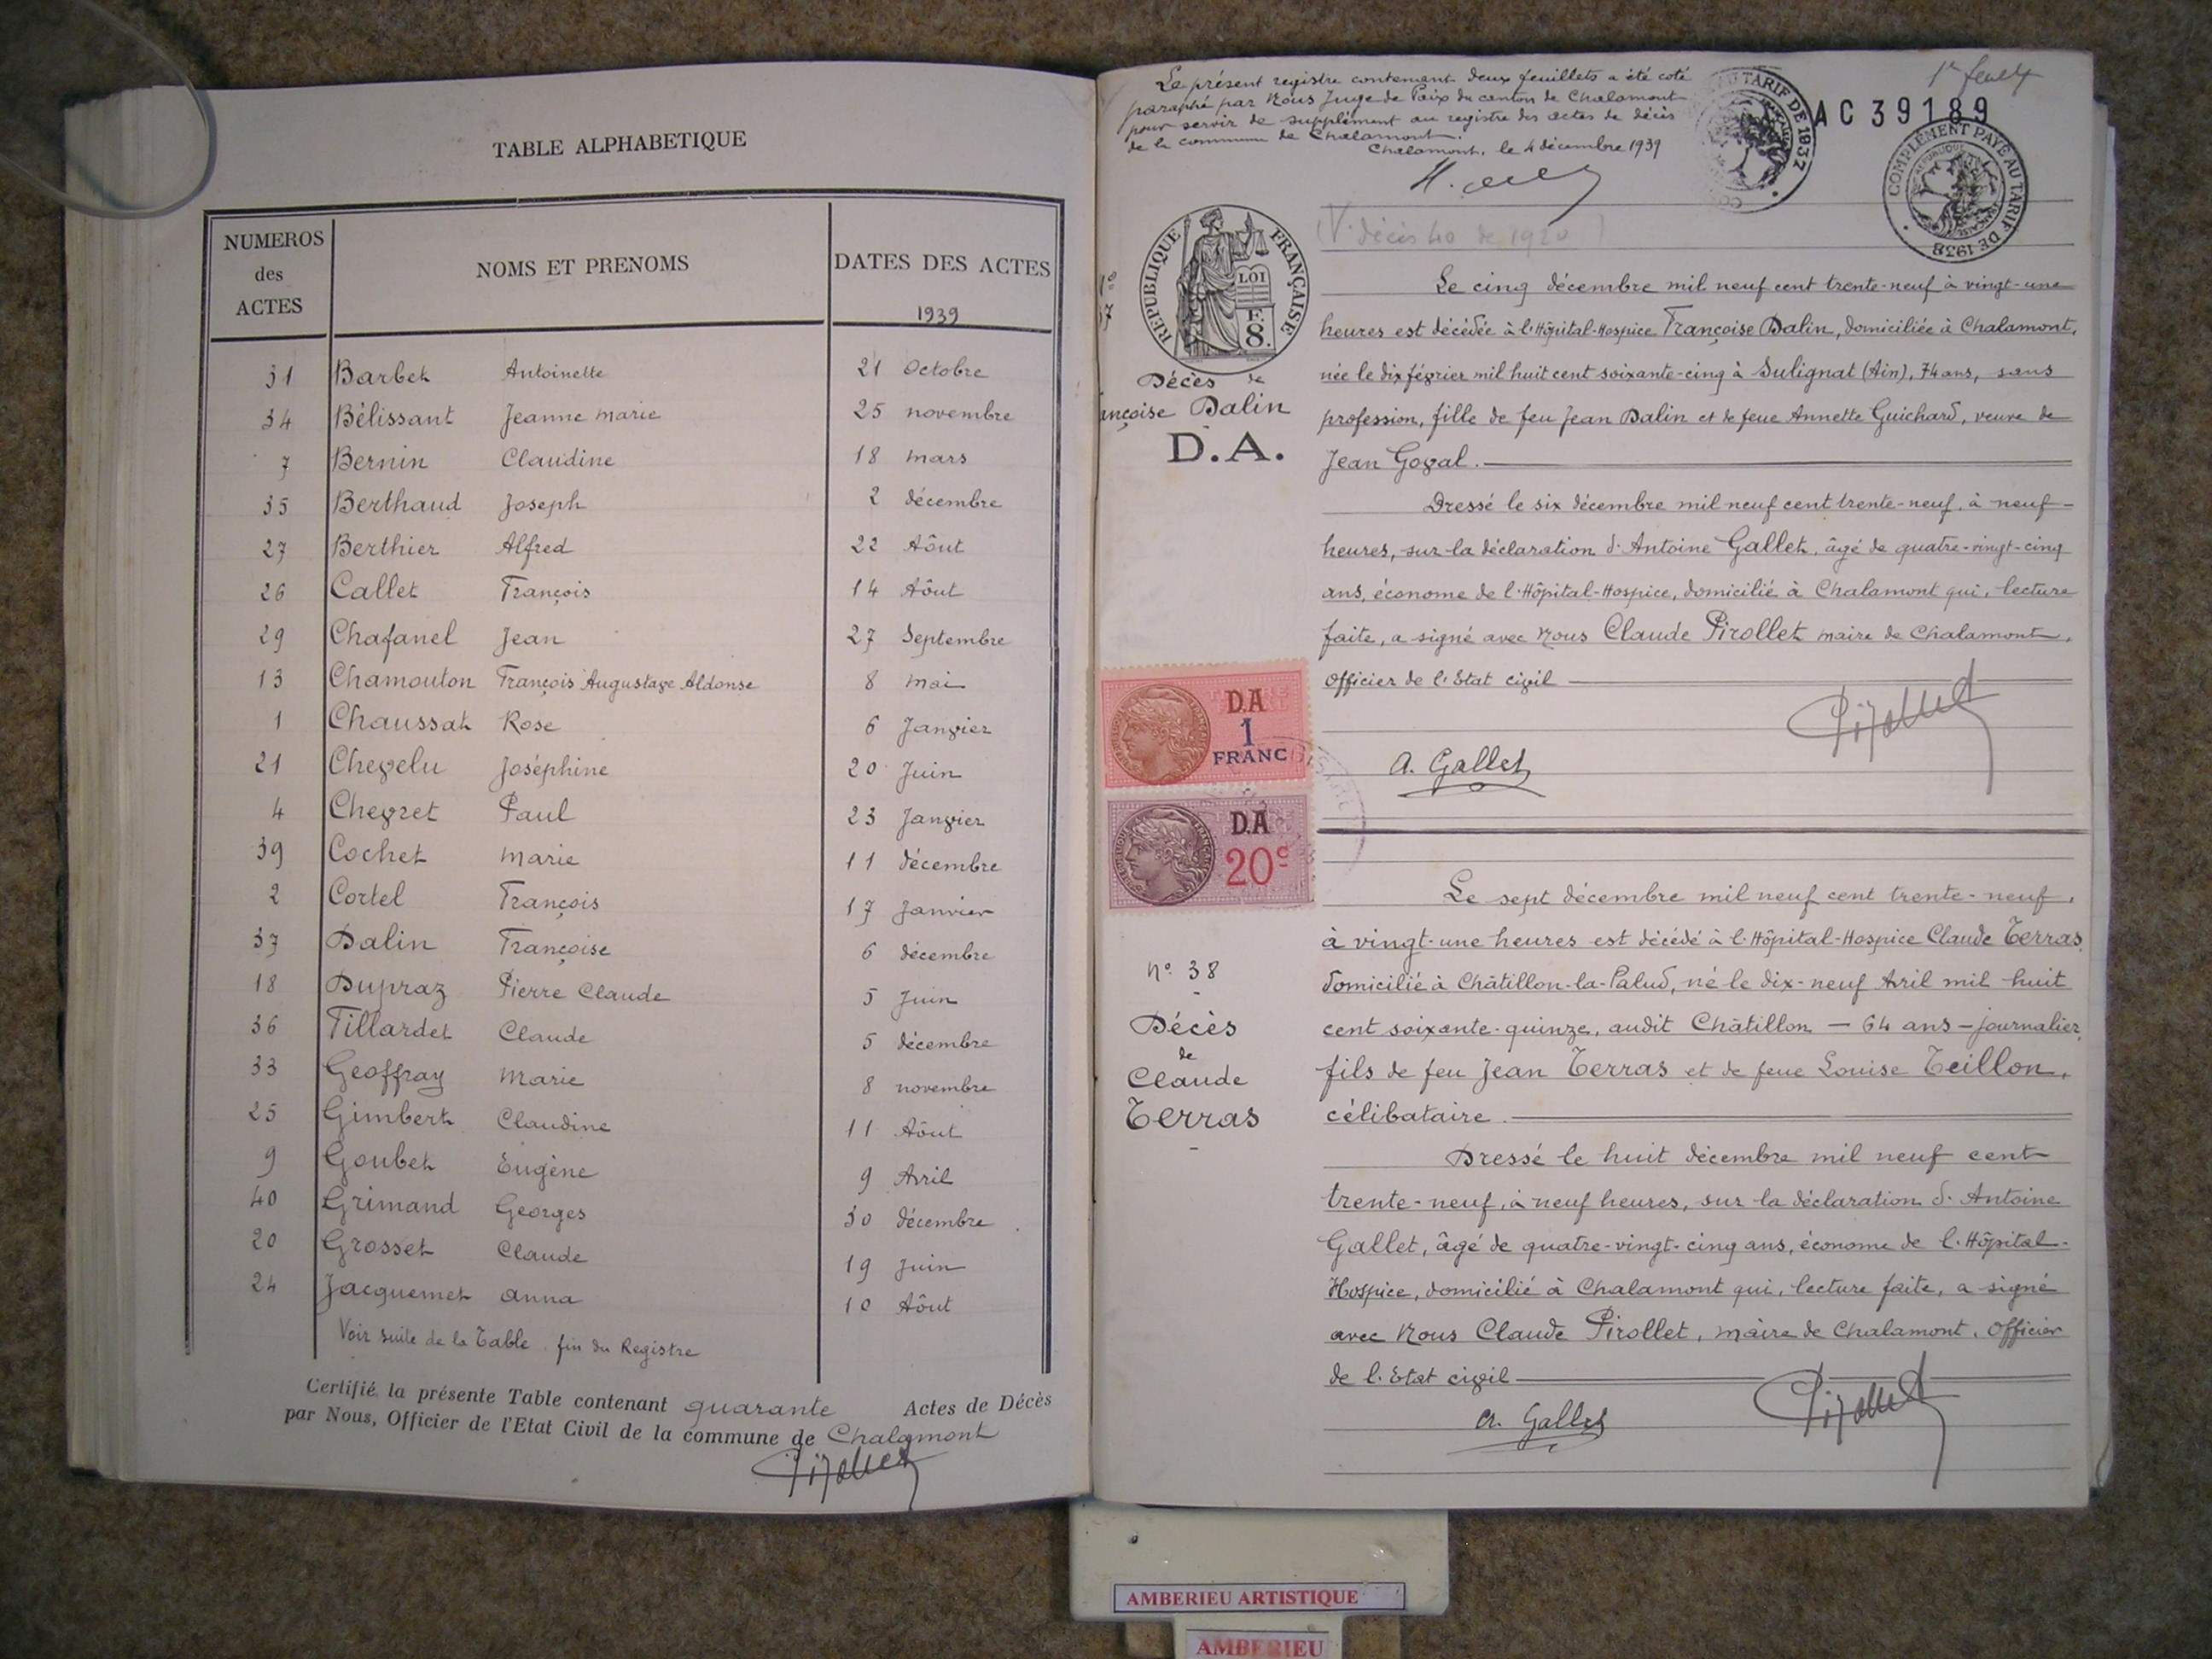 TABLE ALPHABETIQUE
NUMEROS des ACTES NOMS ET PRENOMS DATES DES ACTES 1939
31 Barbet Antoinette 21 Octobre
34 Bélissant Jeanne Marie 25 novembre
7 Bernin Claudine 18 mars
35 Berthaud Joseph 2 décembre
27 Berthier Alfred 22 Aôut
26 Callet François 14 Aôut
29 Chafanel Jean 27 Septembre
13 Chamouton François Augustave Aldonse 8 mai
1 Chaussat Rose 6 Janvier
21 Chevelu Joséphine 20 Juin
4 Chevret Paul 23 Janvier
39 Cochet Marie 11 décembre
2 Cortel François 17 Janvier
37 Dalin Françoise 6 décembre
18 Dupraz Pierre Claude 5 Juin
36 Fillardet Claude 5 décembre
33 Geoffray Marie 8 novembre
25 Gimbert Claudine 11 Aôut
9 Goubet Eugène 9 Avril
40 Grimand Georges 30 décembre
20 Grosset Claude 19 Juin
24 Jacquemet Anna 10 Aôut
Voir suite de la Table fin du Registre
Certifié la présente Table contenant quarante Actes de Décès
par Nous, Officier de l'Etat Civil de la commune de Chalamont
Pirollet
Le présent registre contenant deux feuillets a été coté
paraphé par Nous Juge de Paix du canton de Chalamont
pour servir de supplément au registre des actes de décès
de la commune de Chalamont.
Chalamont, le 4 décembre 1939
1er feuillet
AC 39189
TARIF DE 1937
COMPLÉMENT PAYÉ AU TARIF DE 1938
RÉPUBLIQUE FRANÇAISE
LOI
F.
8.
(V. décès 40 de 1920)
37
Décès de
ançoise Dalin
D.A.
Le cinq décembre mil neuf cent trente-neuf à vingt-une
heures est décédée à l'Hôpital-Hospice Françoise Dalin, domiciliée à Chalamont,
née le dix février mil huit cent soixante-cinq à Sulignat (Ain), 74 ans, sans
profession, fille de feu Jean Dalin et de feue Annette Guichard, veuve de
Jean Goval.
Dressé le six décembre mil neuf cent trente-neuf, à neuf
heures, sur la déclaration d'Antoine Gallet, âgé de quatre-vingt-cinq
ans, économe de l'Hôpital-Hospice, domicilié à Chalamont qui, lecture
faite, a signé avec Nous Claude Pirollet maire de Chalamont,
Officier de l'Etat civil
Pirollet
A. Gallet
D.A
1
FRANC
D.A
20c
N° 38
Décès
de
Claude
Terras
Le sept décembre mil neuf cent trente-neuf,
à vingt-une heures est décédé à l'Hôpital-Hospice Claude Terras,
domicilié à Châtillon-la-Palud, né le dix-neuf Avril mil huit
cent soixante-quinze, audit Châtillon – 64 ans – journalier,
fils de feu Jean Terras et de feue Louise Teillon,
célibataire.
Dressé le huit décembre mil neuf cent
trente-neuf, à neuf heures, sur la déclaration d'Antoine
Gallet, âgé de quatre-vingt-cinq ans, économe de l'Hôpital-
Hospice, domicilié à Chalamont qui, lecture faite, a signé
avec Nous Claude Pirollet, maire de Chalamont, Officier
de l'Etat civil
A. Gallet
Pirollet
AMBERIEU ARTISTIQUE
AMBERIEU